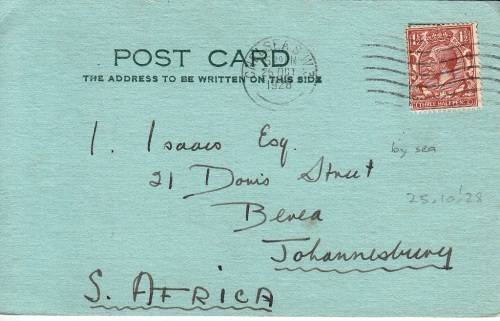 POST CARD
THE ADDRESS TO BE WRITTEN ON THIS SIDE
GLASGOW
25 OCT
1928
1½ 1½
THREE HALFPENCE
I. Isaacs Esq.
21 Doris Street
Berea
Johannesburg
S. AFRICA
by sea
25.10.'28